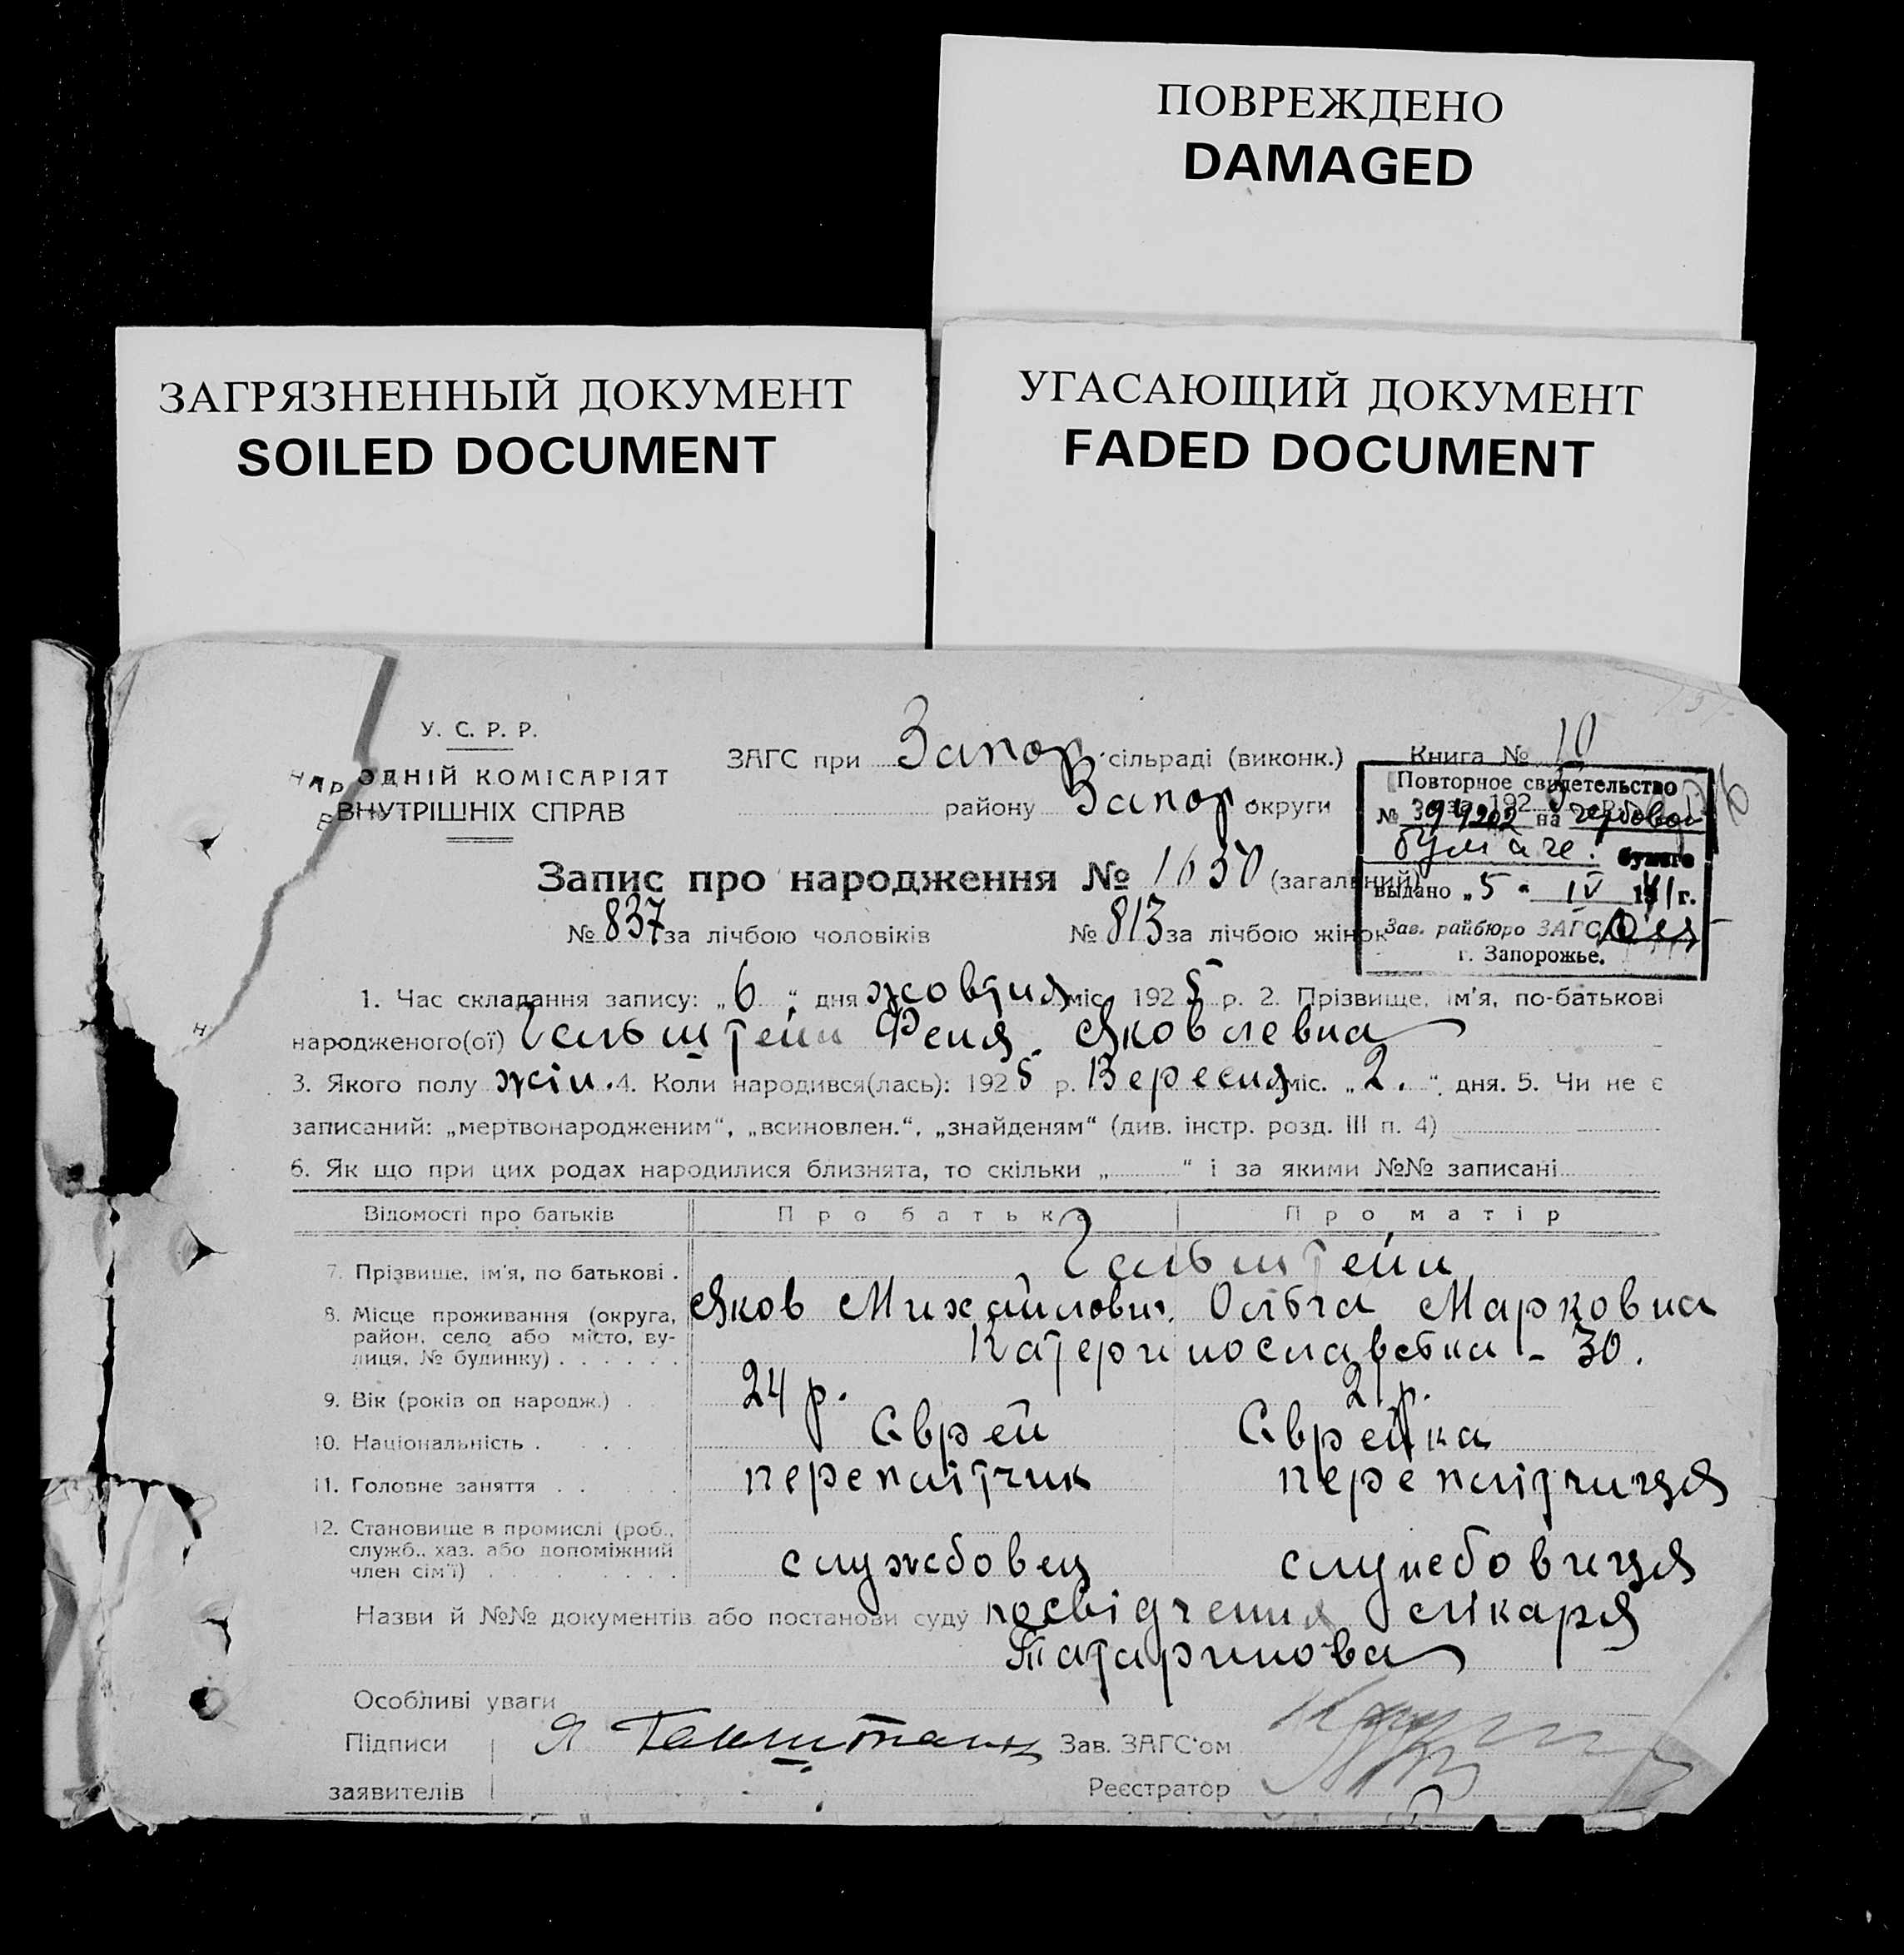 ПОВРЕЖДЕНО
DAMAGED
ЗАГРЯЗНЕННЫЙ ДОКУМЕНТ
SOILED DOCUMENT
УГАСАЮЩИЙ ДОКУМЕНТ
FADED DOCUMENT
У. С. Р. Р.
НАРОДНІЙ КОМІСАРІЯТ
ВНУТРІШНІХ СПРАВ
ЗАГС при Запор. сільраді (виконк.)
району Запор округи
Книга № 10
за 1925 р.
Повторное свидетельство
№ на гербовой
бумаге. бумаге
выдано „5" IV 1941 г.
Зав. райбюро ЗАГС
г. Запорожье.
Запис про народження № 1650 (загальний)
№ 837 за лічбою чоловіків № 813 за лічбою жінок
1. Час складання запису: „6" дня жовтня міс. 1925 р. 2. Прізвище, ім'я, по-батькові
народженого(ої) Гольштейн Феня Яковлевна
3. Якого полу жін. 4. Коли народився(лась): 1925 р. Вересня міс. „2." дня. 5. Чи не є
записаний: „мертвонародженим", „всиновлен.", „знайденям" (див. інстр. розд. III п. 4)
6. Як що при цих родах народилися близнята, то скільки „ " і за якими №№ записані
Відомості про батьків Про батька Про матір
7. Прізвище, ім'я, по батькові . Гольштейн
Яков Михайлович. Ольга Марковна
8. Місце проживання (округа, район, село або місто, вулиця, № будинку) . . . . . . Катеринославська - 30.
9. Вік (років од народж.) . 24 р. 21 р.
10. Національність . . . . . Єврей Єврейка
11. Головне заняття . . . . переплітчик переплітчиця
12. Становище в промислі (роб., служб., хаз. або допоміжний член сім'ї) . . . . . . . . службовец службовиця
Назви й №№ документів або постанови суду посвідчення лікаря
Татаринова
Особливі уваги
Підписи Я Гольштейн Зав. ЗАГС'ом
заявителів Реєстратор